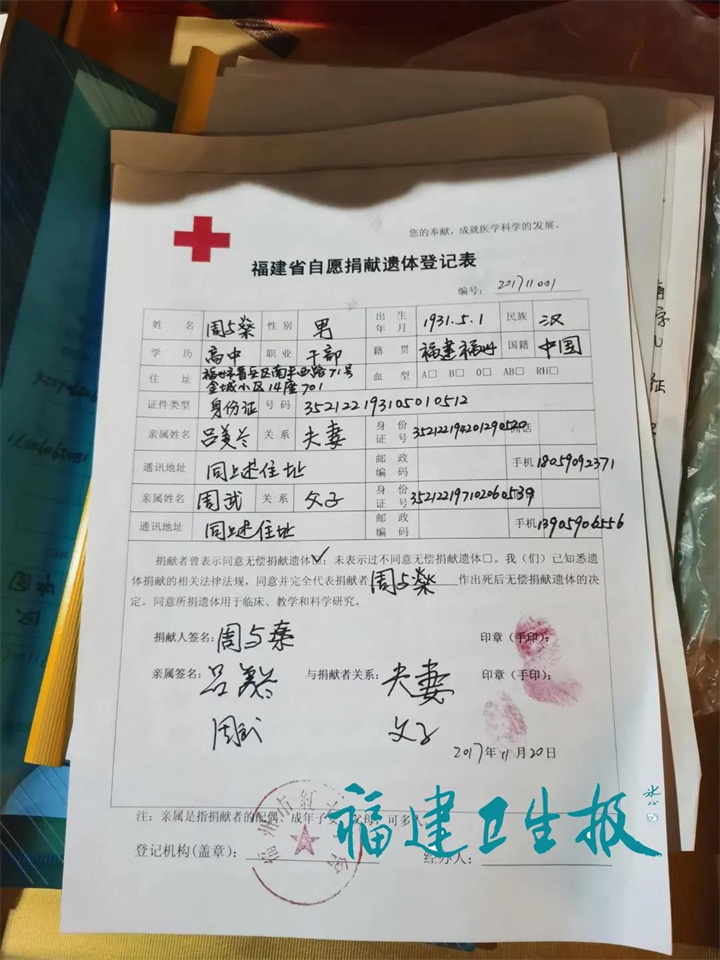 您的奉献，成就医学科学的发展。
福建省自愿捐献遗体登记表
编号：201711001
姓名 周与燊 性别 男 出生年月 1931.5.1 民族 汉
学历 高中 职业 干部 籍贯 福建福州 国籍 中国
住址 福州市晋安区南平西路71号金城小区14座701 血型 A□ B□ O□ AB□ RH□
证件类型 身份证 号码 352122193105010512
亲属姓名 吕美兰 关系 夫妻 身份证号 352122194201290520 电话
通讯地址 同上述住址 邮政编码 手机 18059092371
亲属姓名 周武 关系 父子 身份证号
通讯地址 同上述住址 邮政编码 手机 13905906556
捐献者曾表示同意无偿捐献遗体☑；未表示过不同意无偿捐献遗体□。我（们）已知悉遗
体捐献的相关法律法规，同意并完全代表捐献者周与燊作出死后无偿捐献遗体的决
定。同意所捐遗体用于临床、教学和科学研究。
捐献人签名：周与燊 印章（手印）：
亲属签名：吕美兰 与捐献者关系：夫妻 印章（手印）：
周武 父子
2017年11月20日
注：亲属是指捐献者的配偶、成年子女、父母，可多人
登记机构(盖章)： 经办人：
福州市红
福建卫生报